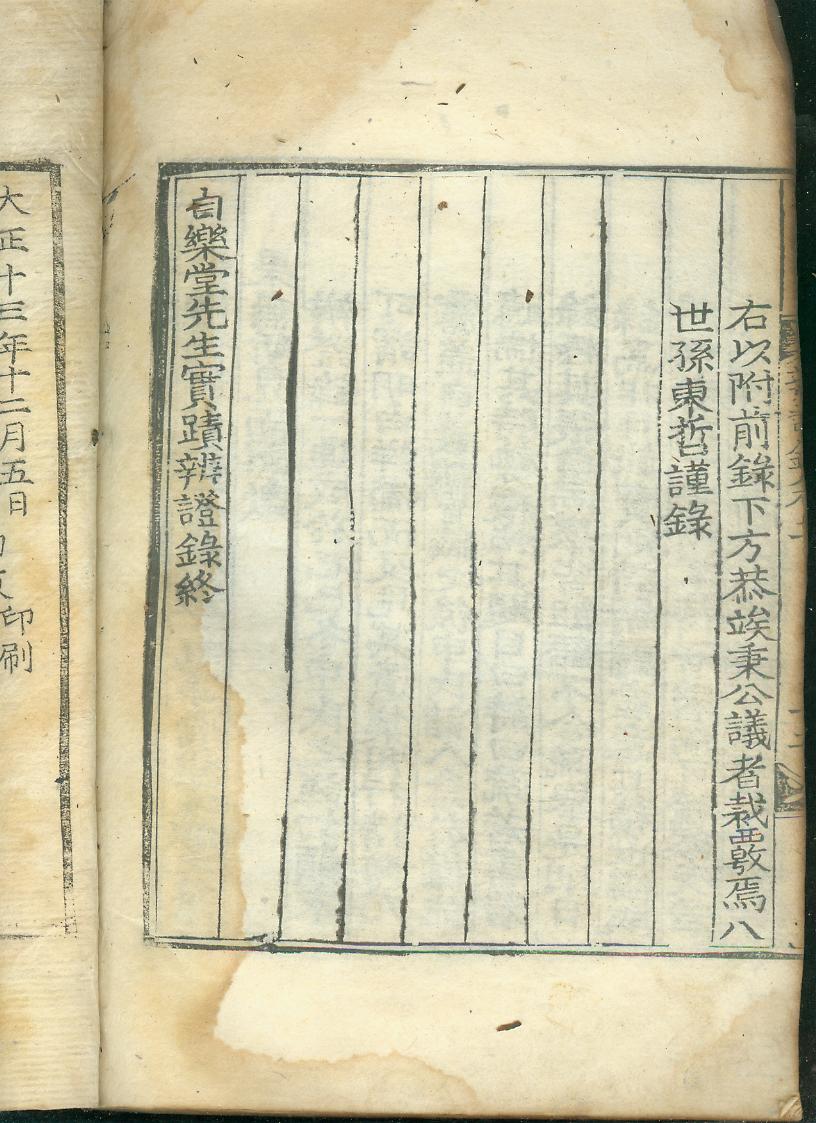 右以附前錄下方恭竢秉公議者裁覈焉八
世孫東哲謹錄
自樂堂先生實蹟辨證錄終
大正十三年十二月五日
印刷